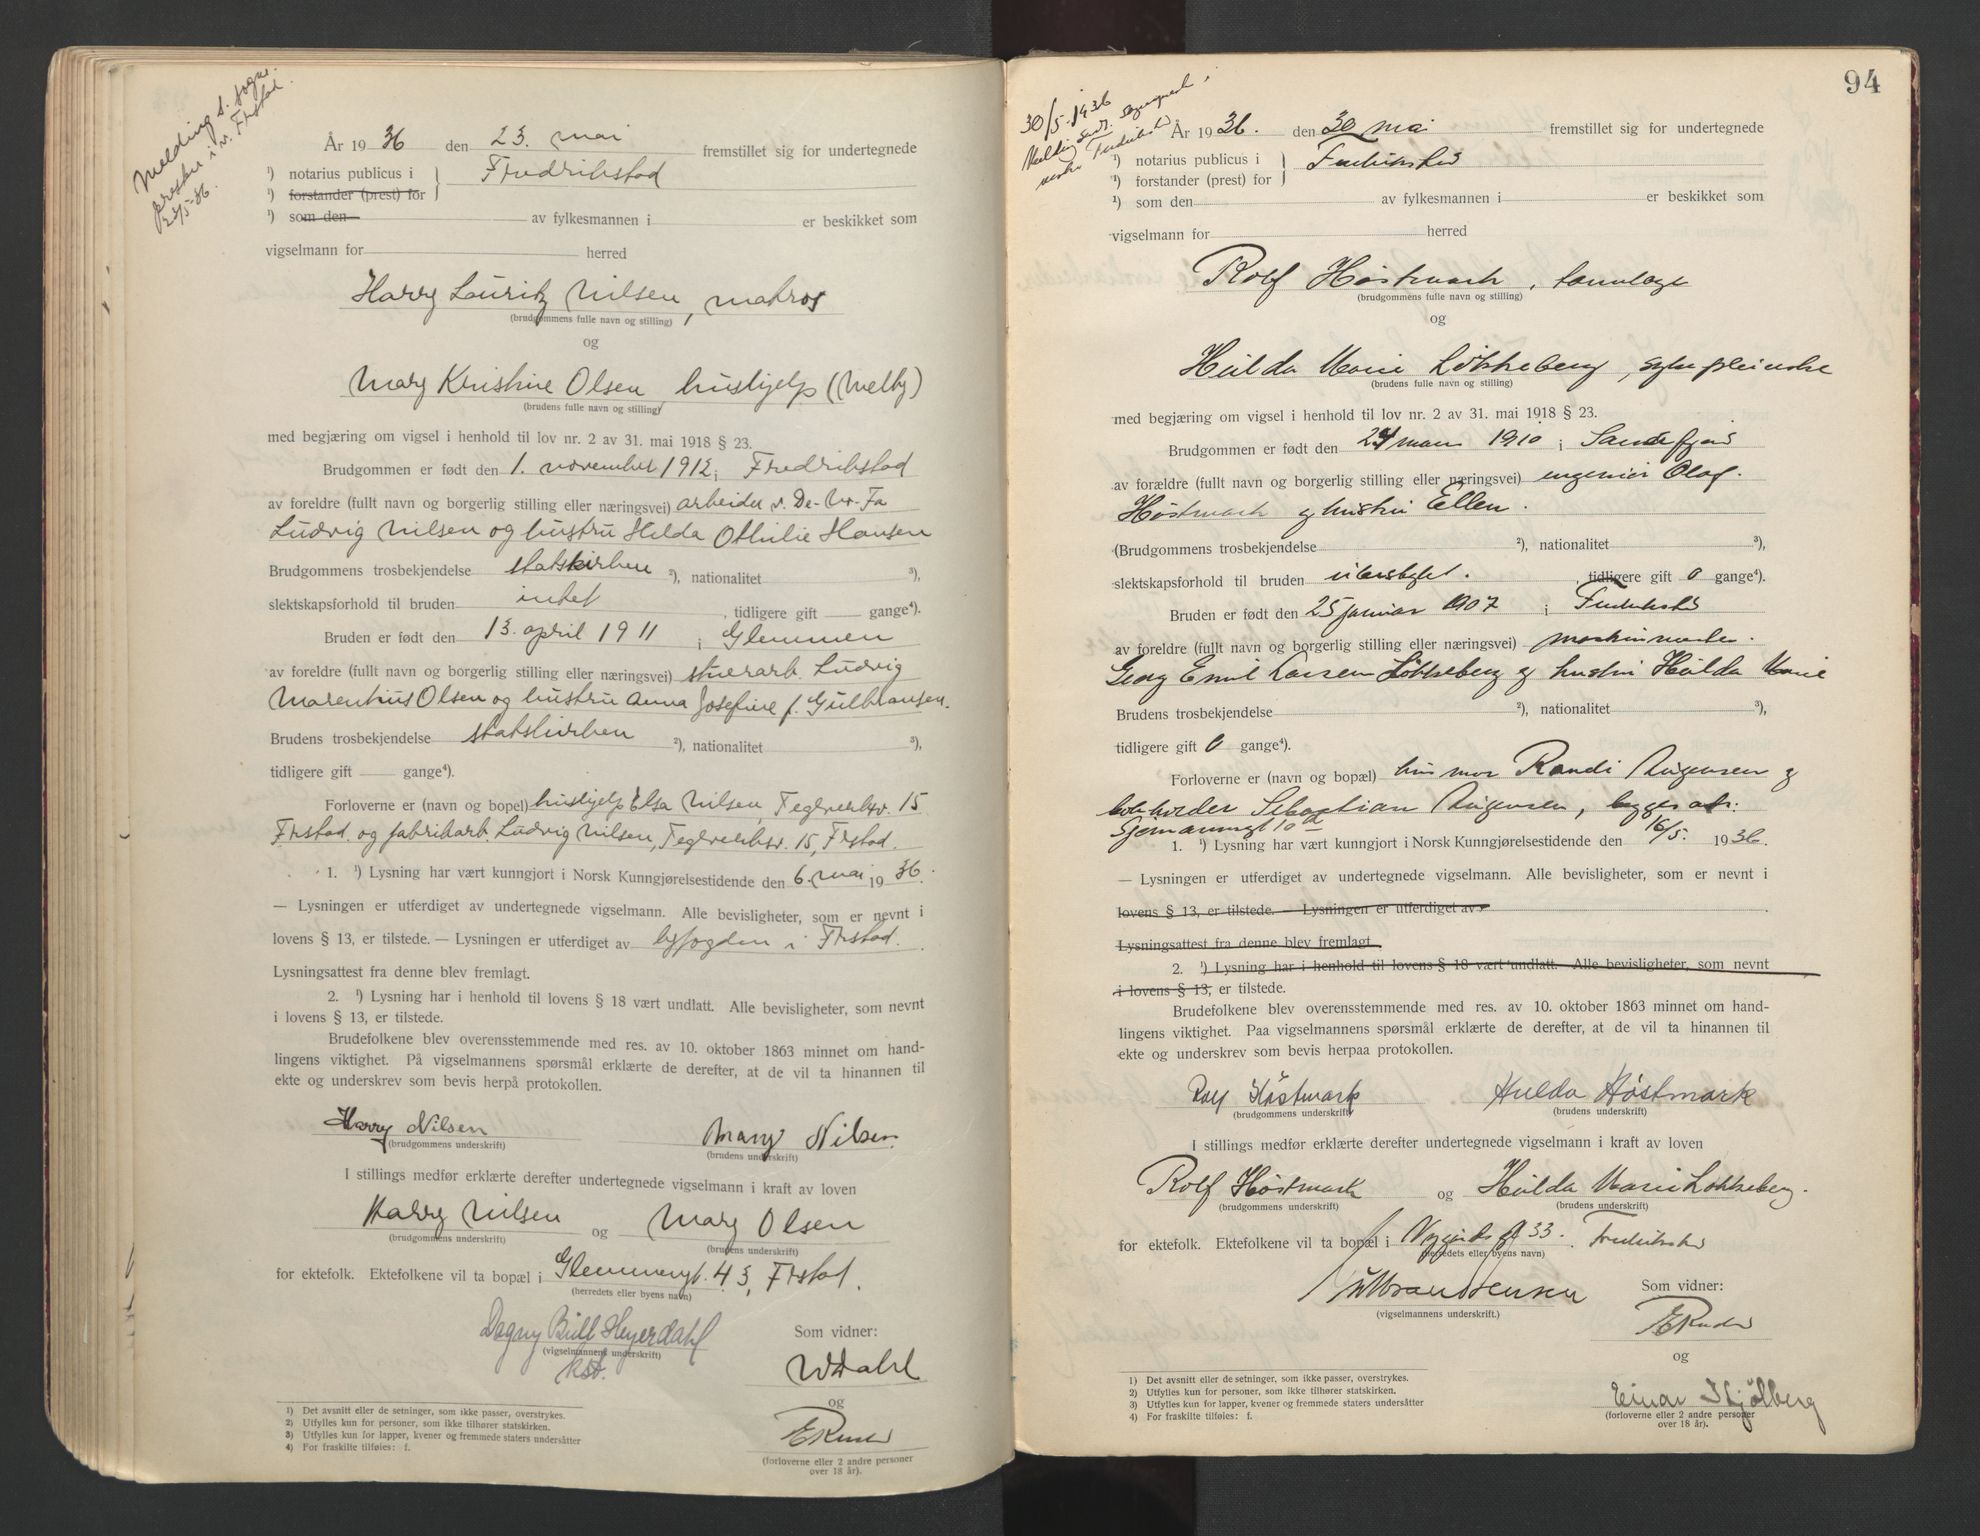 Melding s. sogne-
presten i v. Frstad.
23/5-36.
År 1936 den 23. mai fremstillet sig for undertegnede
¹) notarius publicus i } Fredrikstad
¹) forstander (prest) for
¹) som den av fylkesmannen i er beskikket som
vigselmann for herred
Harry Lauritz Nilsen, matros
(brudgommens fulle navn og stilling)
og
Mary Kristine Olsen, hushjelp (Melby)
(brudens fulle navn og stilling)
med begjæring om vigsel i henhold til lov nr. 2 av 31. mai 1918 § 23.
Brudgommen er født den 1. november 1912 i Fredrikstad
av foreldre (fullt navn og borgerlig stilling eller næringsvei) arbeider v. De-No-Fa
Ludvig Nilsen og hustru Hilda Othilie Hansen
Brudgommens trosbekjendelse statskirken ²), nationalitet ³),
slektskapsforhold til bruden intet, tidligere gift gange⁴).
Bruden er født den 13. april 1911 i Glemmen
av foreldre (fullt navn og borgerlig stilling eller næringsvei) stuerarb. Ludvig
Marenius Olsen og hustru Anna Josefine f. Gulbransen.
Brudens trosbekjendelse statskirken ²), nationalitet ³),
tidligere gift gange⁴).
Forloverne er (navn og bopel) hushjelp Elsa Nilsen, Teglverksv. 15
Frstad og fabrikarb. Ludvig Nilsen, Teglverksv. 15, Frstad.
1. ¹) Lysning har vært kunngjort i Norsk Kunngjørelsestidende den 6. mai 1936.
— Lysningen er utferdiget av undertegnede vigselmann. Alle bevisligheter, som er nevnt i
lovens § 13, er tilstede. — Lysningen er utferdiget av byfogden i Frstad.
Lysningsattest fra denne blev fremlagt.
2. ¹) Lysning har i henhold til lovens § 18 vært undlatt. Alle bevisligheter, som nevnt
i lovens § 13, er tilstede.
Brudefolkene blev overensstemmende med res. av 10. oktober 1863 minnet om hand-
lingens viktighet. På vigselmannens spørsmål erklærte de derefter, at de vil ta hinannen til
ekte og underskrev som bevis herpå protokollen.
Harry Nilsen Mary Nilsen
(brudgommens underskrift) (brudens underskrift)
I stillings medfør erklærte derefter undertegnede vigselmann i kraft av loven
Harry Nilsen og Mary Olsen
(brudgommens underskrift) (brudens underskrift)
for ektefolk. Ektefolkene vil ta bopæl i Glemmengt. 43, Frstad.
(herredets eller byens navn)
Dagny Bull Heyerdahl
(vigselmannens underskrift)
kst.
Som vidner:
W Dahl
og
E Ruud
(forloverne eller 2 andre personer
over 18 år).
1) Det avsnitt eller de setninger, som ikke passer, overstrykes.
2) Utfylles kun for personer, som ikke tilhører statskirken.
3) Utfylles kun for lapper, kvener og fremmede staters undersåtter
4) For fraskilte tilføies: f.
94
30/5-1936
Melding sendt sogneprest
Fredrikstad
År 1936. den 30 mai fremstillet sig for undertegnede
¹) notarius publicus i } Fredrikstad
¹) forstander (prest) for
¹) som den av fylkesmannen i er beskikket som
vigselmann for herred
Rolf Høstmark, tannlæge
(brudgommens fulle navn og stilling)
og
Hulda Marie Løkkeberg, sykepleierske
(brudens fulle navn og stilling)
med begjæring om vigsel i henhold til lov nr. 2 av 31. mai 1918 § 23.
Brudgommen er født den 24 mars 1910 i Sandefjord
av forældre (fullt navn og borgerlig stilling eller næringsvei) ingeniør Olaf
Høstmark og hustru Ellen.
(Brudgommens trosbekjendelse ²), nationalitet ³),
slektskapsforhold til bruden ubeslektet. , tidligere gift 0 gange⁴).
Bruden er født den 25 januar 1907 i Fredrikstad
av foreldre (fullt navn og borgerlig stilling eller næringsvei) maskinmester
Georg Emil Larsen Løkkeberg og hustru Hulda Marie
Brudens trosbekjendelse ²), nationalitet ³),
tidligere gift 0 gange⁴).
Forloverne er (navn og bopæl) husmor Randi Jürgensen og
bokholder Sebastian Jürgensen, begges adr.
10d
1. ¹) Lysning har vært kunngjort i Norsk Kunngjørelsestidende den 16/5. 1936.
— Lysningen er utferdiget av undertegnede vigselmann. Alle bevisligheter, som er nevnt i
lovens § 13, er tilstede. — Lysningen er utferdiget av
Lysningsattest fra denne blev fremlagt
2. ¹) Lysning har i henhold til lovens § 18 vært undlatt. Alle bevisligheter, som nevnt
i lovens § 13, er tilstede.
Brudefolkene blev overensstemmende med res. av 10. oktober 1863 minnet om hand-
lingens viktighet. Paa vigselmannens spørsmål erklærte de derefter, at de vil ta hinannen til
ekte og underskrev som bevis herpaa protokollen.
Rolf Høstmark Hulda Høstmark
(brudgommens underskrift) (brudens underskrift)
I stillings medfør erklærte derefter undertegnede vigselmann i kraft av loven
Rolf Høstmark og Hulda Marie Løkkeberg.
(brudgommens underskrift) (brudens underskrift)
for ektefolk. Ektefolkene vil ta bopæl i Nygårds gt 33. Fredrikstad
(herredets eller byens navn)
(vigselmannens underskrift.)
Som vidner:
E Ruud
og
Einar Skjølberg
(forloverne eller 2 andre personer
over 18 år).
1) Det avsnitt eller de setninger, som ikke passer, overstrykes.
2) Utfylles kun for personer, som ikke tilhører statskirken.
3) Utfylles kun for lapper, kvener og fremmede staters undersåtter
4) For fraskilte tilføies: f.